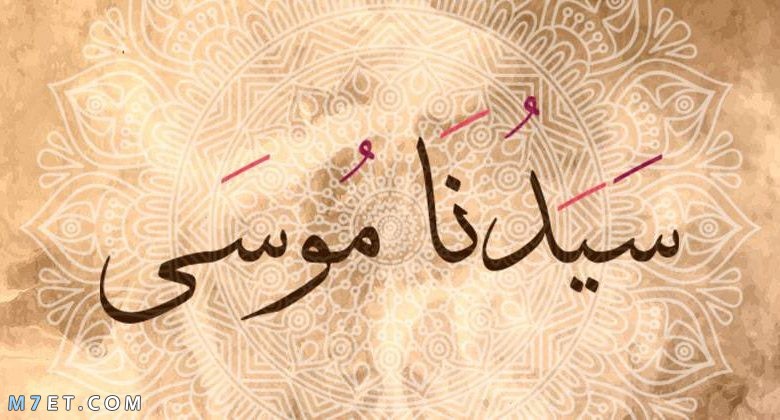 سَيَدُنَا مُوسَى
M7ET.COM